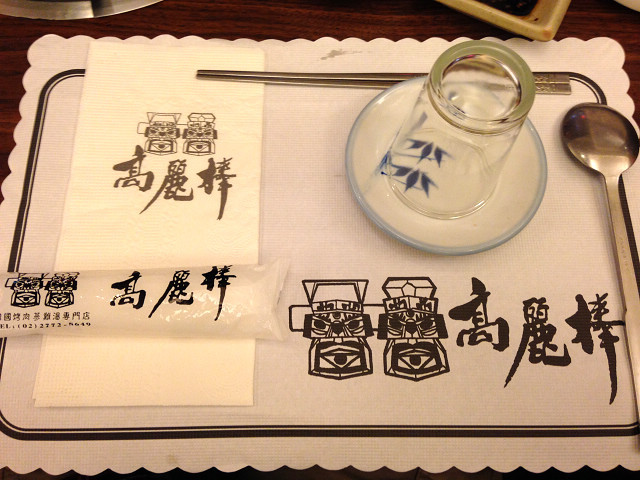 高麗棒
高麗棒
國烤肉蔘雞湯專門店
TEL:(02)2772-8649
高麗棒